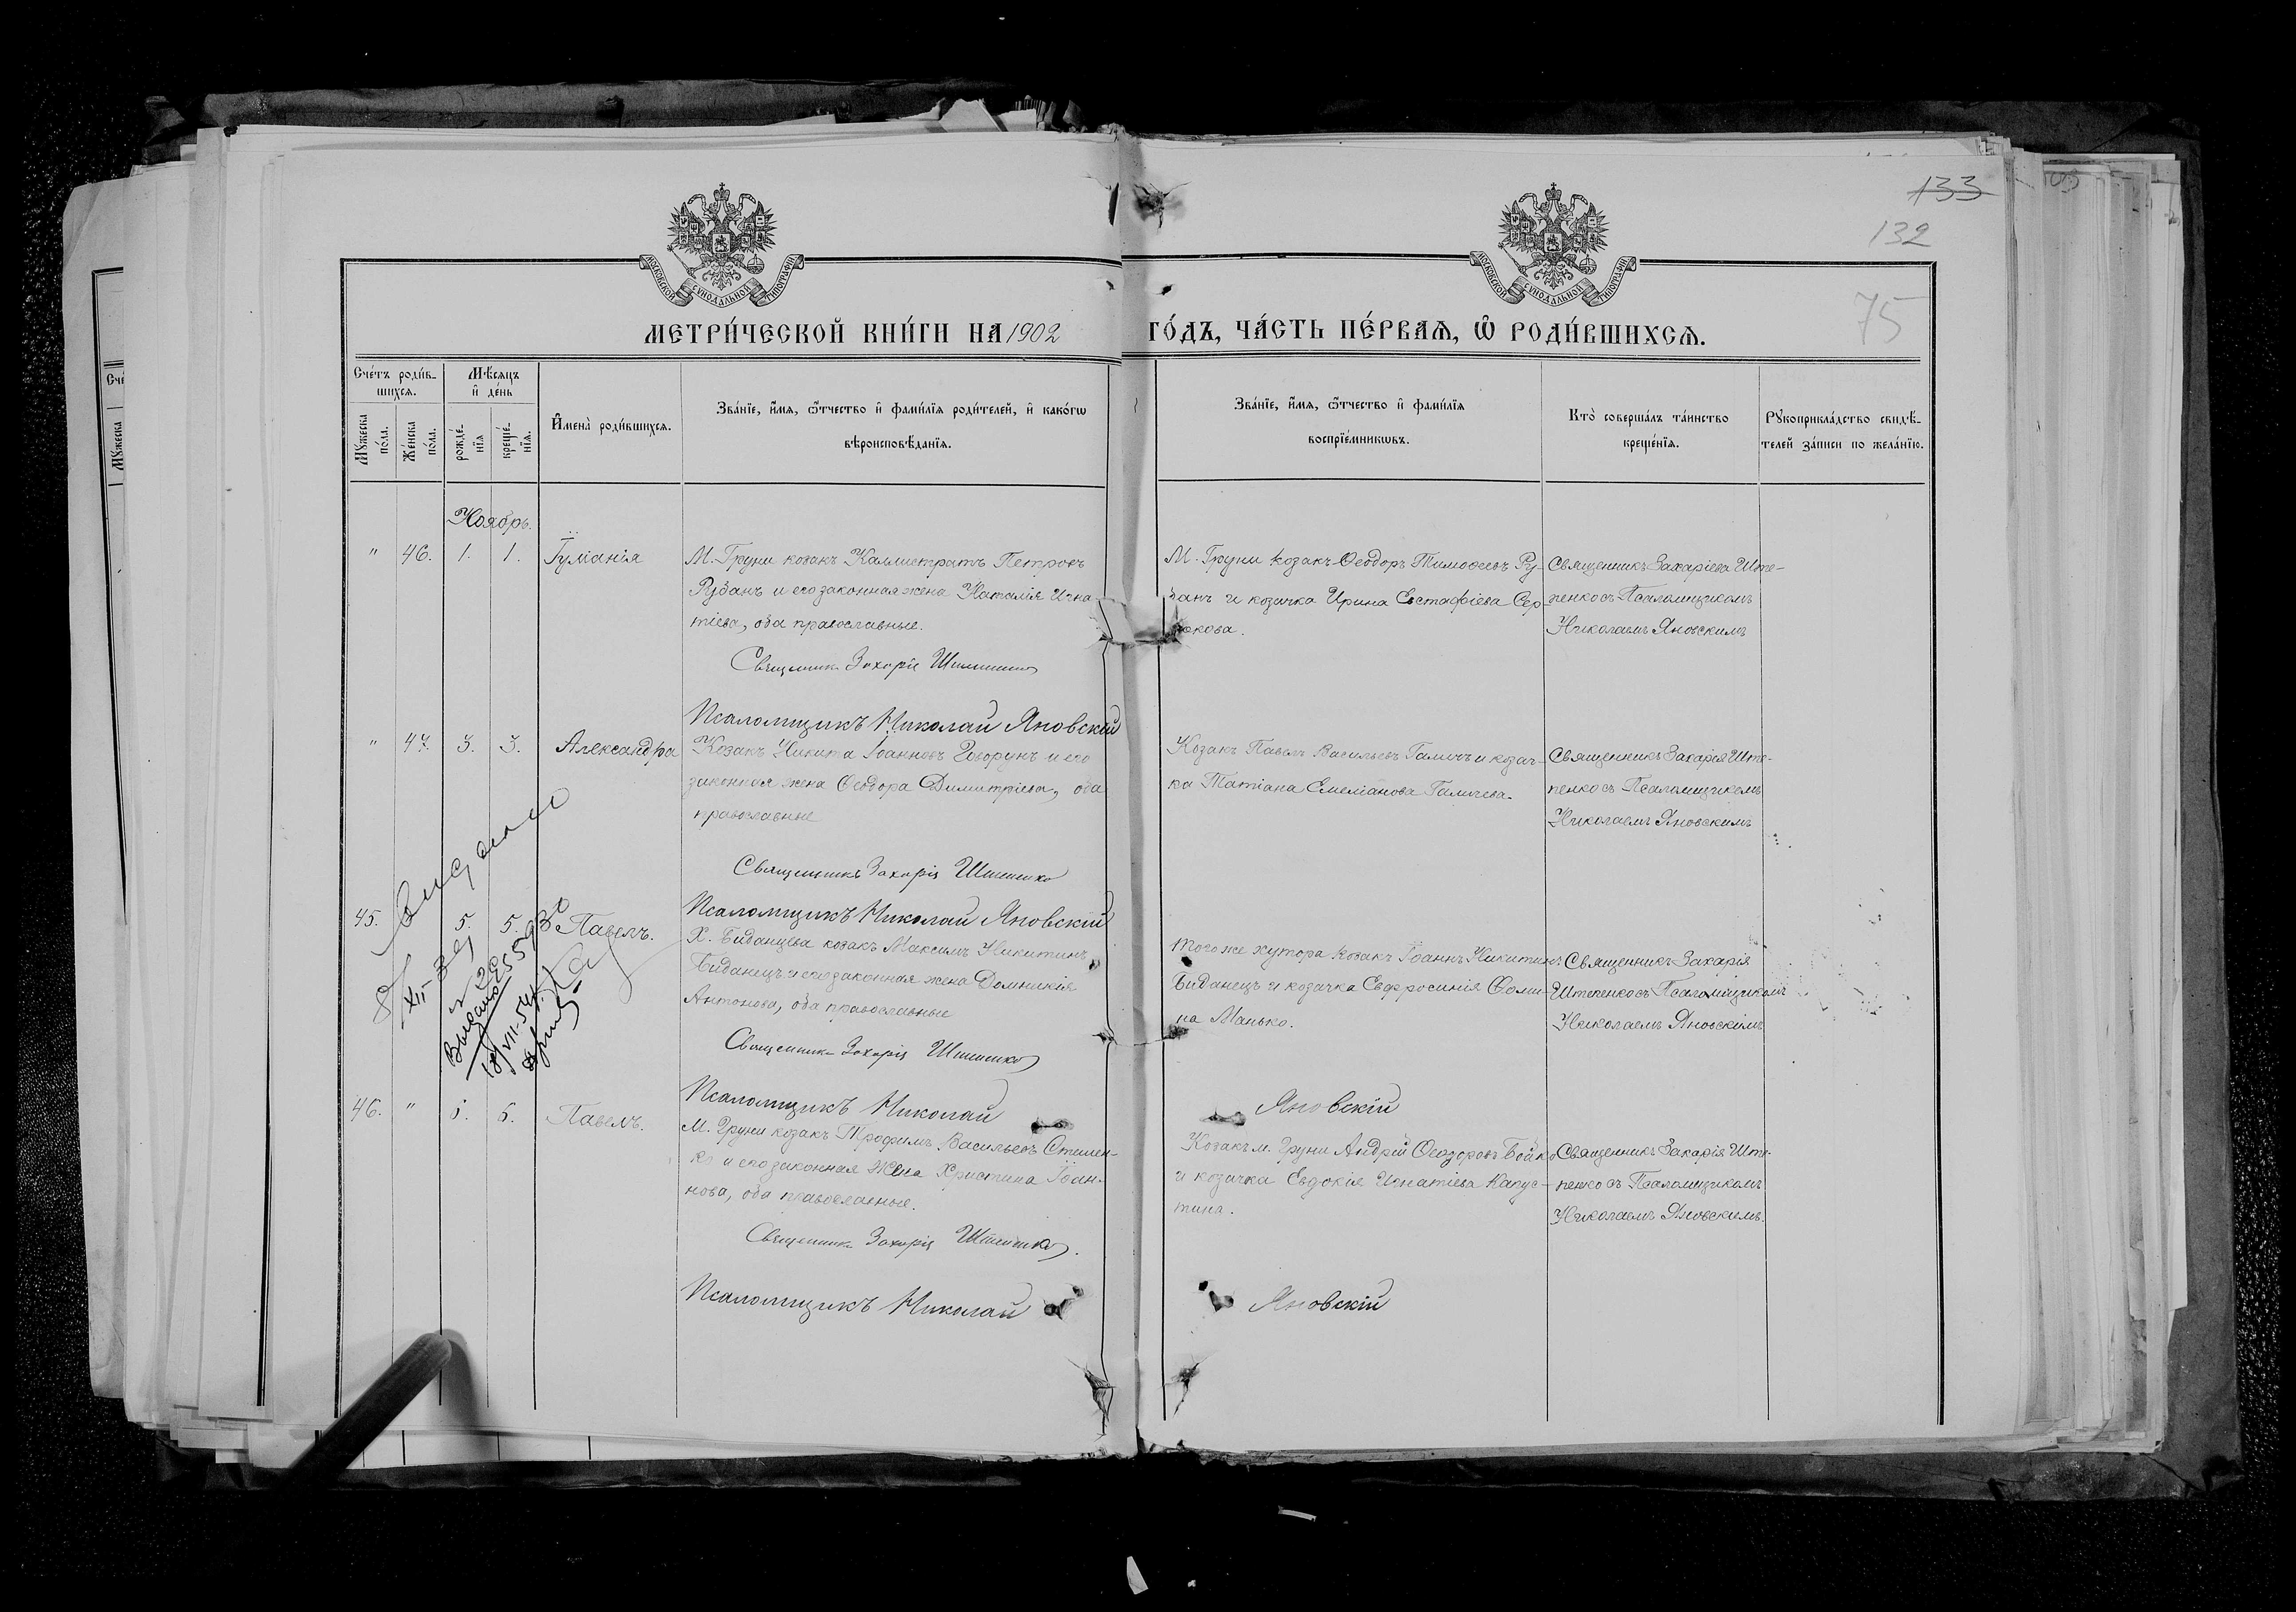 133
132
75
МОСКОВСКОЙ СѴНОДАЛЬНОЙ ТИПОГРАФІИ
МОСКОВСКОЙ СѴНОДАЛЬНОЙ ТИПОГРАФІИ
МЕТРИ́ЧЕСКОЙ КНИ́ГИ НА 1902 ГО́ДЪ, ЧА́СТЬ ПЕ́РВАѦ, Ѽ РОДИ́ВШИХСѦ.
Сче́тъ роди́в-
шихсѧ.
Мѣ́сѧцъ
и҆ де́нь
Мꙋ́жеска
по́ла.
Же́нска
по́ла.
рожде́-
нїѧ
креще́-
нїѧ.
И҆мена̀ роди́вшихсѧ.
Зва́нїе, и҆́мѧ, ѻ҆́тчество и҆ фами́лїѧ роди́телей, и҆ како́гѡ
вѣроисповѣ́данїѧ.
Зва́нїе, и҆́мѧ, ѻ҆́тчество и҆ фами́лїѧ
воспрїе́мникѡвъ.
Кто̀ соверша́лъ та́инство
креще́нїѧ.
Рꙋкоприкла́дство свидѣ́-
телей за́писи по жела́нїю.
Ноябрь.
" 46. 1. 1. Іуліанія
М. Груни козакъ Каллистратъ Петровъ
Рубанъ и его законная жена Наталія Игна-
тіева, оба православные.
Священникъ Захарія
Псаломщикъ Николай Яновскій
М. Груни козакъ Ѳеодоръ Тимоѳеевъ Ру-
банъ и козачка Ирина Евстафіева Сер-
юкова.
Священникъ Ште-
пенко съ Псаломщикомъ
Николаемъ Яновскимъ
" 47. 3. 3. Александра
Козакъ Никита Іоанновъ Говорунъ и его
законная жена Ѳеодора Димитріева, оба
православные
Священникъ Захарія
Псаломщикъ Николай Яновскій
Козакъ Павелъ Васильевъ Галичъ и козач-
ка Татіана Емеліанова Галичева.
Священникъ Захарія Ште-
пенко съ Псаломщикомъ
Николаемъ Яновскимъ
45. 5. 5. Павелъ.
Х. Биданцева козакъ Максимъ Никитинъ
Биданецъ и его законная жена Домникія
Антонова, оба православные
Священникъ Захарія
Псаломщикъ Николай Яновскій
того же хутора козакъ Іоаннъ Никитинъ
Биданецъ и козачка Евфросинія Ѳоми-
на Манько.
Священникъ Захарія
Штепенко съ Псаломщикомъ
Николаемъ Яновскимъ
Выдано
18/VII-54
46. " 6. 6. Павелъ.
М. Груни козакъ Трофимъ Васильевъ
и его законная жена Христина Іоан-
нова, оба православные.
Священникъ Захарія
Псаломщикъ Николай Яновскій
Козакъ м. Груни Андрей Ѳеодоровъ Бойко
и козачка Евдокія Игнатіева Капус-
тина.
Священникъ Захарія Ште-
пенко съ Псаломщикомъ
Николаемъ Яновскимъ.